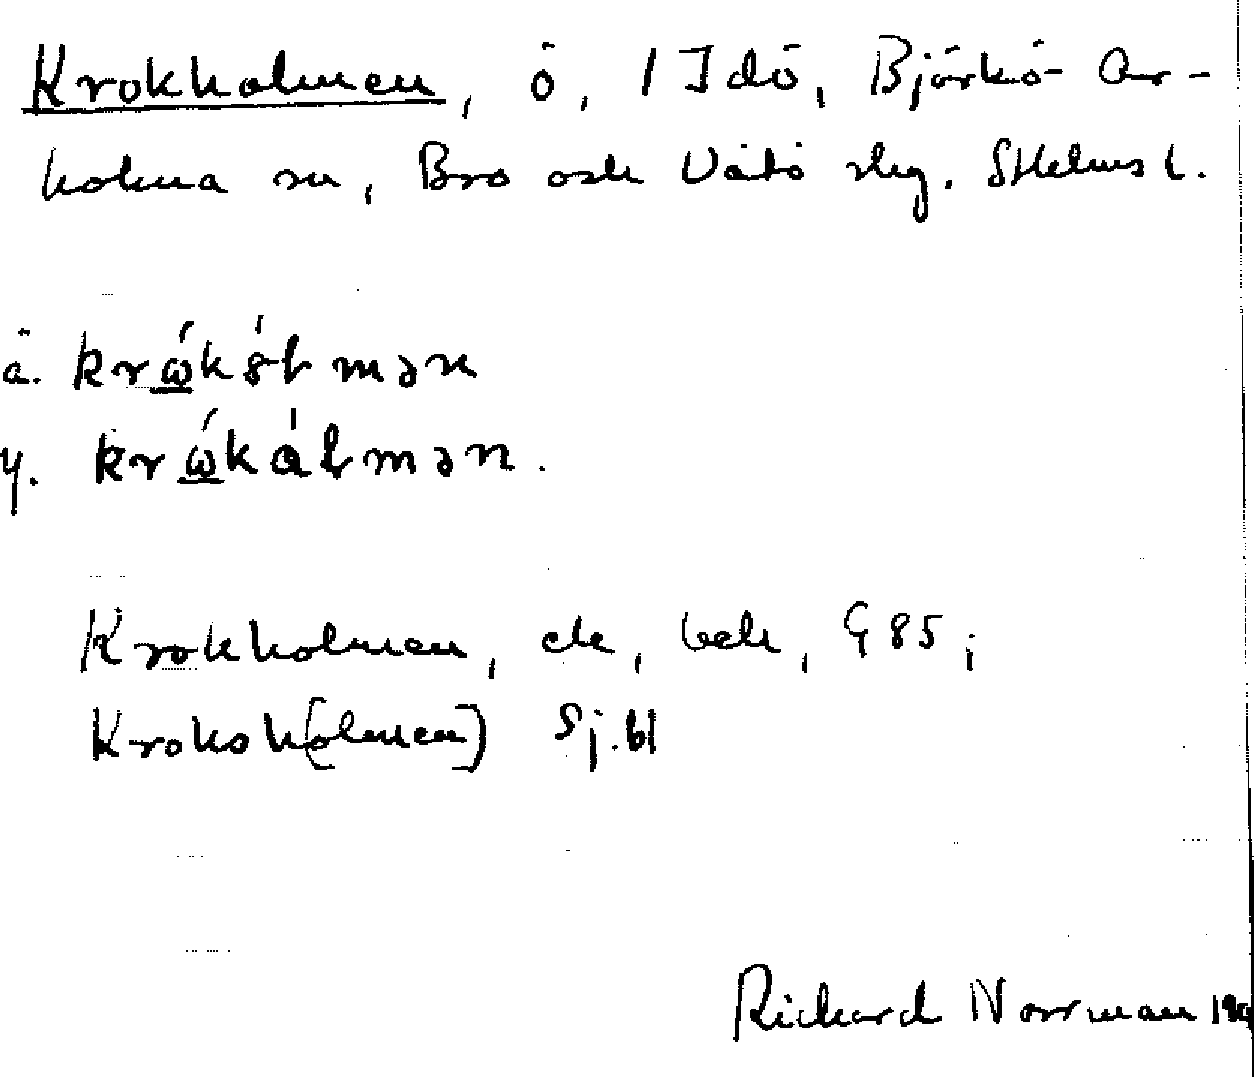 Krokholmen, ö, 1 Idö, Björkö-Ar-
holma sn, Bro och Vätö slg. Sthlms l.
ä. krώ̲kól mən
y. krώ̲kál mən.
Krokholmen, ek, bek, G 85;
Kroksh[olmen] Sj.bl
Richard Norrman